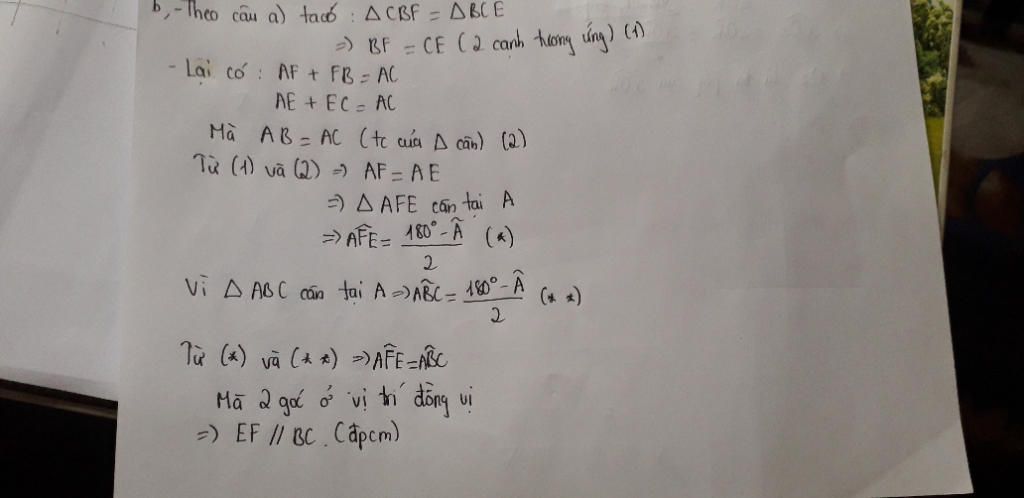 b, -Theo câu a) ta có : △CBF = △BCE
=> BF = CE (2 cạnh tương ứng) (1)
- Lại có : AF + FB = AC
AE + EC = AC
Mà AB = AC (tc của △ cân) (2)
Từ (1) và (2) => AF = AE
=> △ AFE cân tại A
=> AF̂E = (180° - Â)/2 (*)
Vì △ ABC cân tại A => AB̂C = (180° - Â)/2 (* *)
Từ (*) và (* *) => AF̂E = AB̂C
Mà 2 góc ở vị trí đồng vị
=> EF // BC. (đpcm)